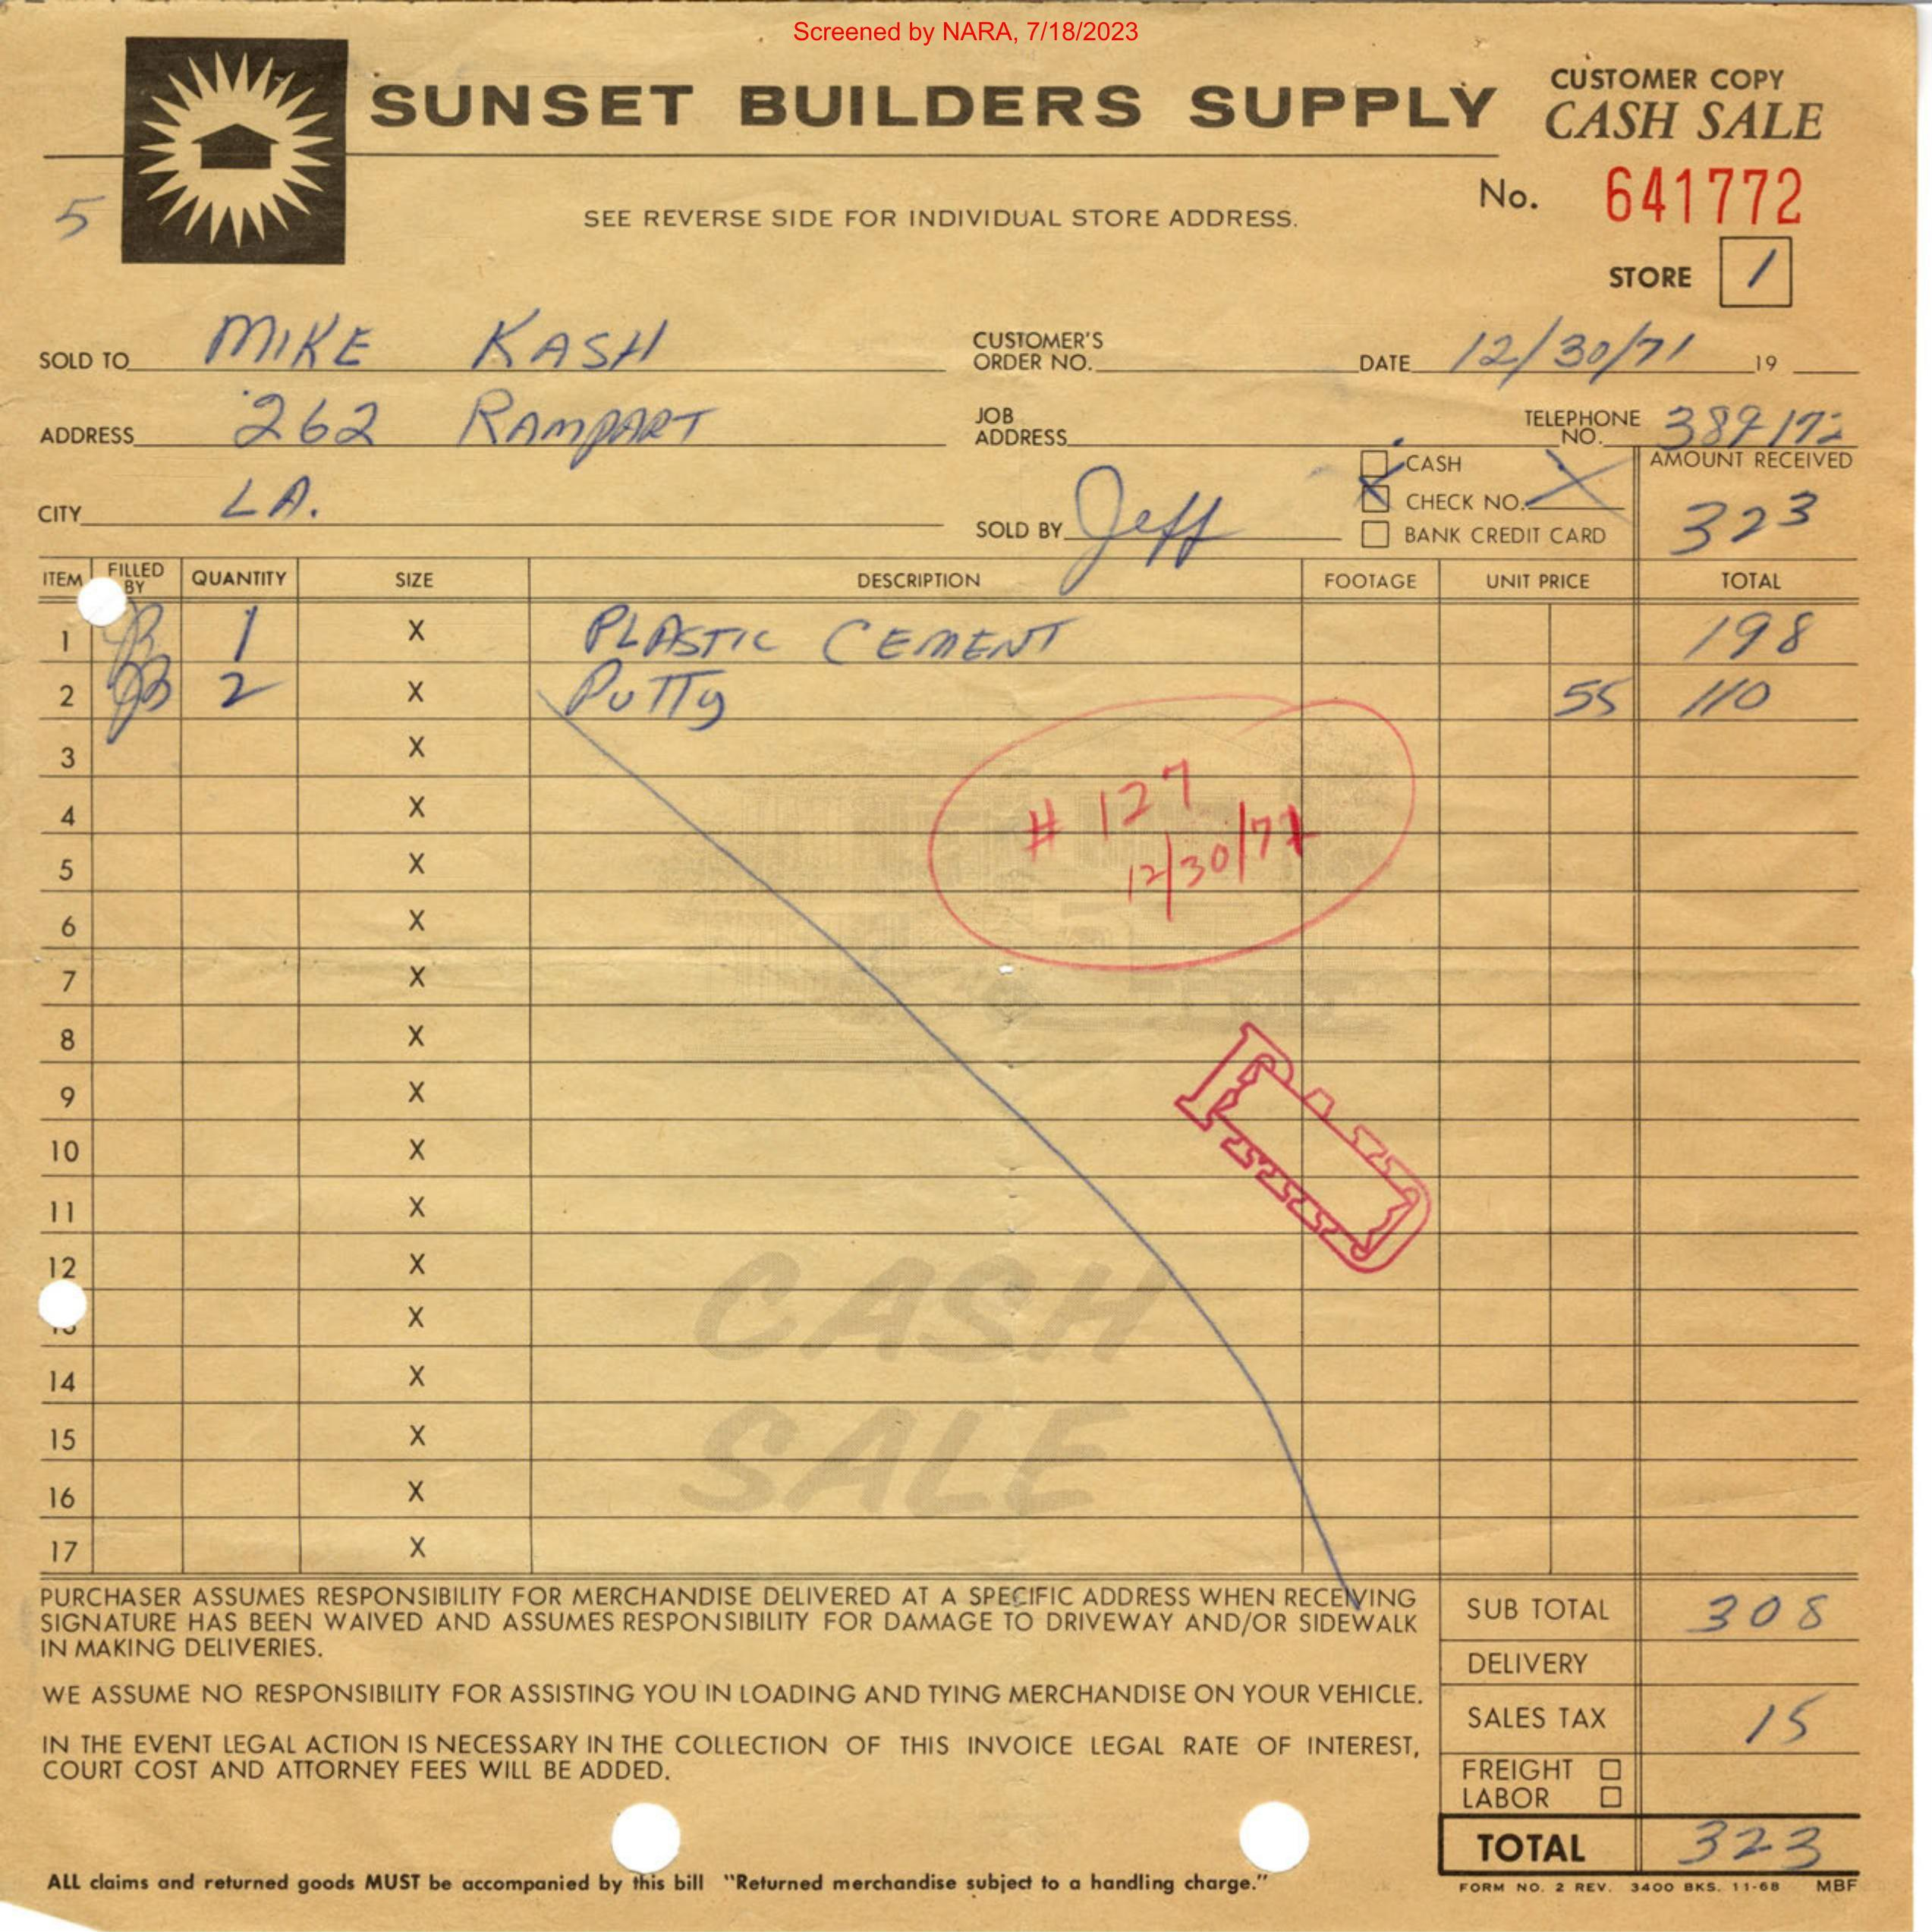 Screened by NARA, 7/18/2023
SUNSET BUILDERS SUPPLY
CUSTOMER COPY
CASH SALE
No. 641772
5
SEE REVERSE SIDE FOR INDIVIDUAL STORE ADDRESS.
STORE 1
SOLD TO MIKE KASH CUSTOMER'S ORDER NO. DATE 12/30/71 19
ADDRESS 262 RAMPART JOB ADDRESS TELEPHONE NO.
CITY LA. SOLD BY Jeff
CASH
CHECK NO. X
BANK CREDIT CARD
AMOUNT RECEIVED
323
ITEM FILLED BY QUANTITY SIZE DESCRIPTION FOOTAGE UNIT PRICE TOTAL
1 1 X PLASTIC CEMENT 198
2 2 X PUTTy 55 110
3 X
4 X
# 127
12/30/71
5 X
6 X
7 X
8 X
9 X
10 X
11 X
12 X
X
14 X
15 X
16 X
17 X
CASH
SALE
PURCHASER ASSUMES RESPONSIBILITY FOR MERCHANDISE DELIVERED AT A SPECIFIC ADDRESS WHEN RECEIVING
SIGNATURE HAS BEEN WAIVED AND ASSUMES RESPONSIBILITY FOR DAMAGE TO DRIVEWAY AND/OR SIDEWALK
IN MAKING DELIVERIES.
WE ASSUME NO RESPONSIBILITY FOR ASSISTING YOU IN LOADING AND TYING MERCHANDISE ON YOUR VEHICLE.
IN THE EVENT LEGAL ACTION IS NECESSARY IN THE COLLECTION OF THIS INVOICE LEGAL RATE OF INTEREST,
COURT COST AND ATTORNEY FEES WILL BE ADDED.
SUB TOTAL 308
DELIVERY
SALES TAX 15
FREIGHT
LABOR
TOTAL 323
ALL claims and returned goods MUST be accompanied by this bill "Returned merchandise subject to a handling charge."
FORM NO. 2 REV. 3400 BKS. 11-68 MBF